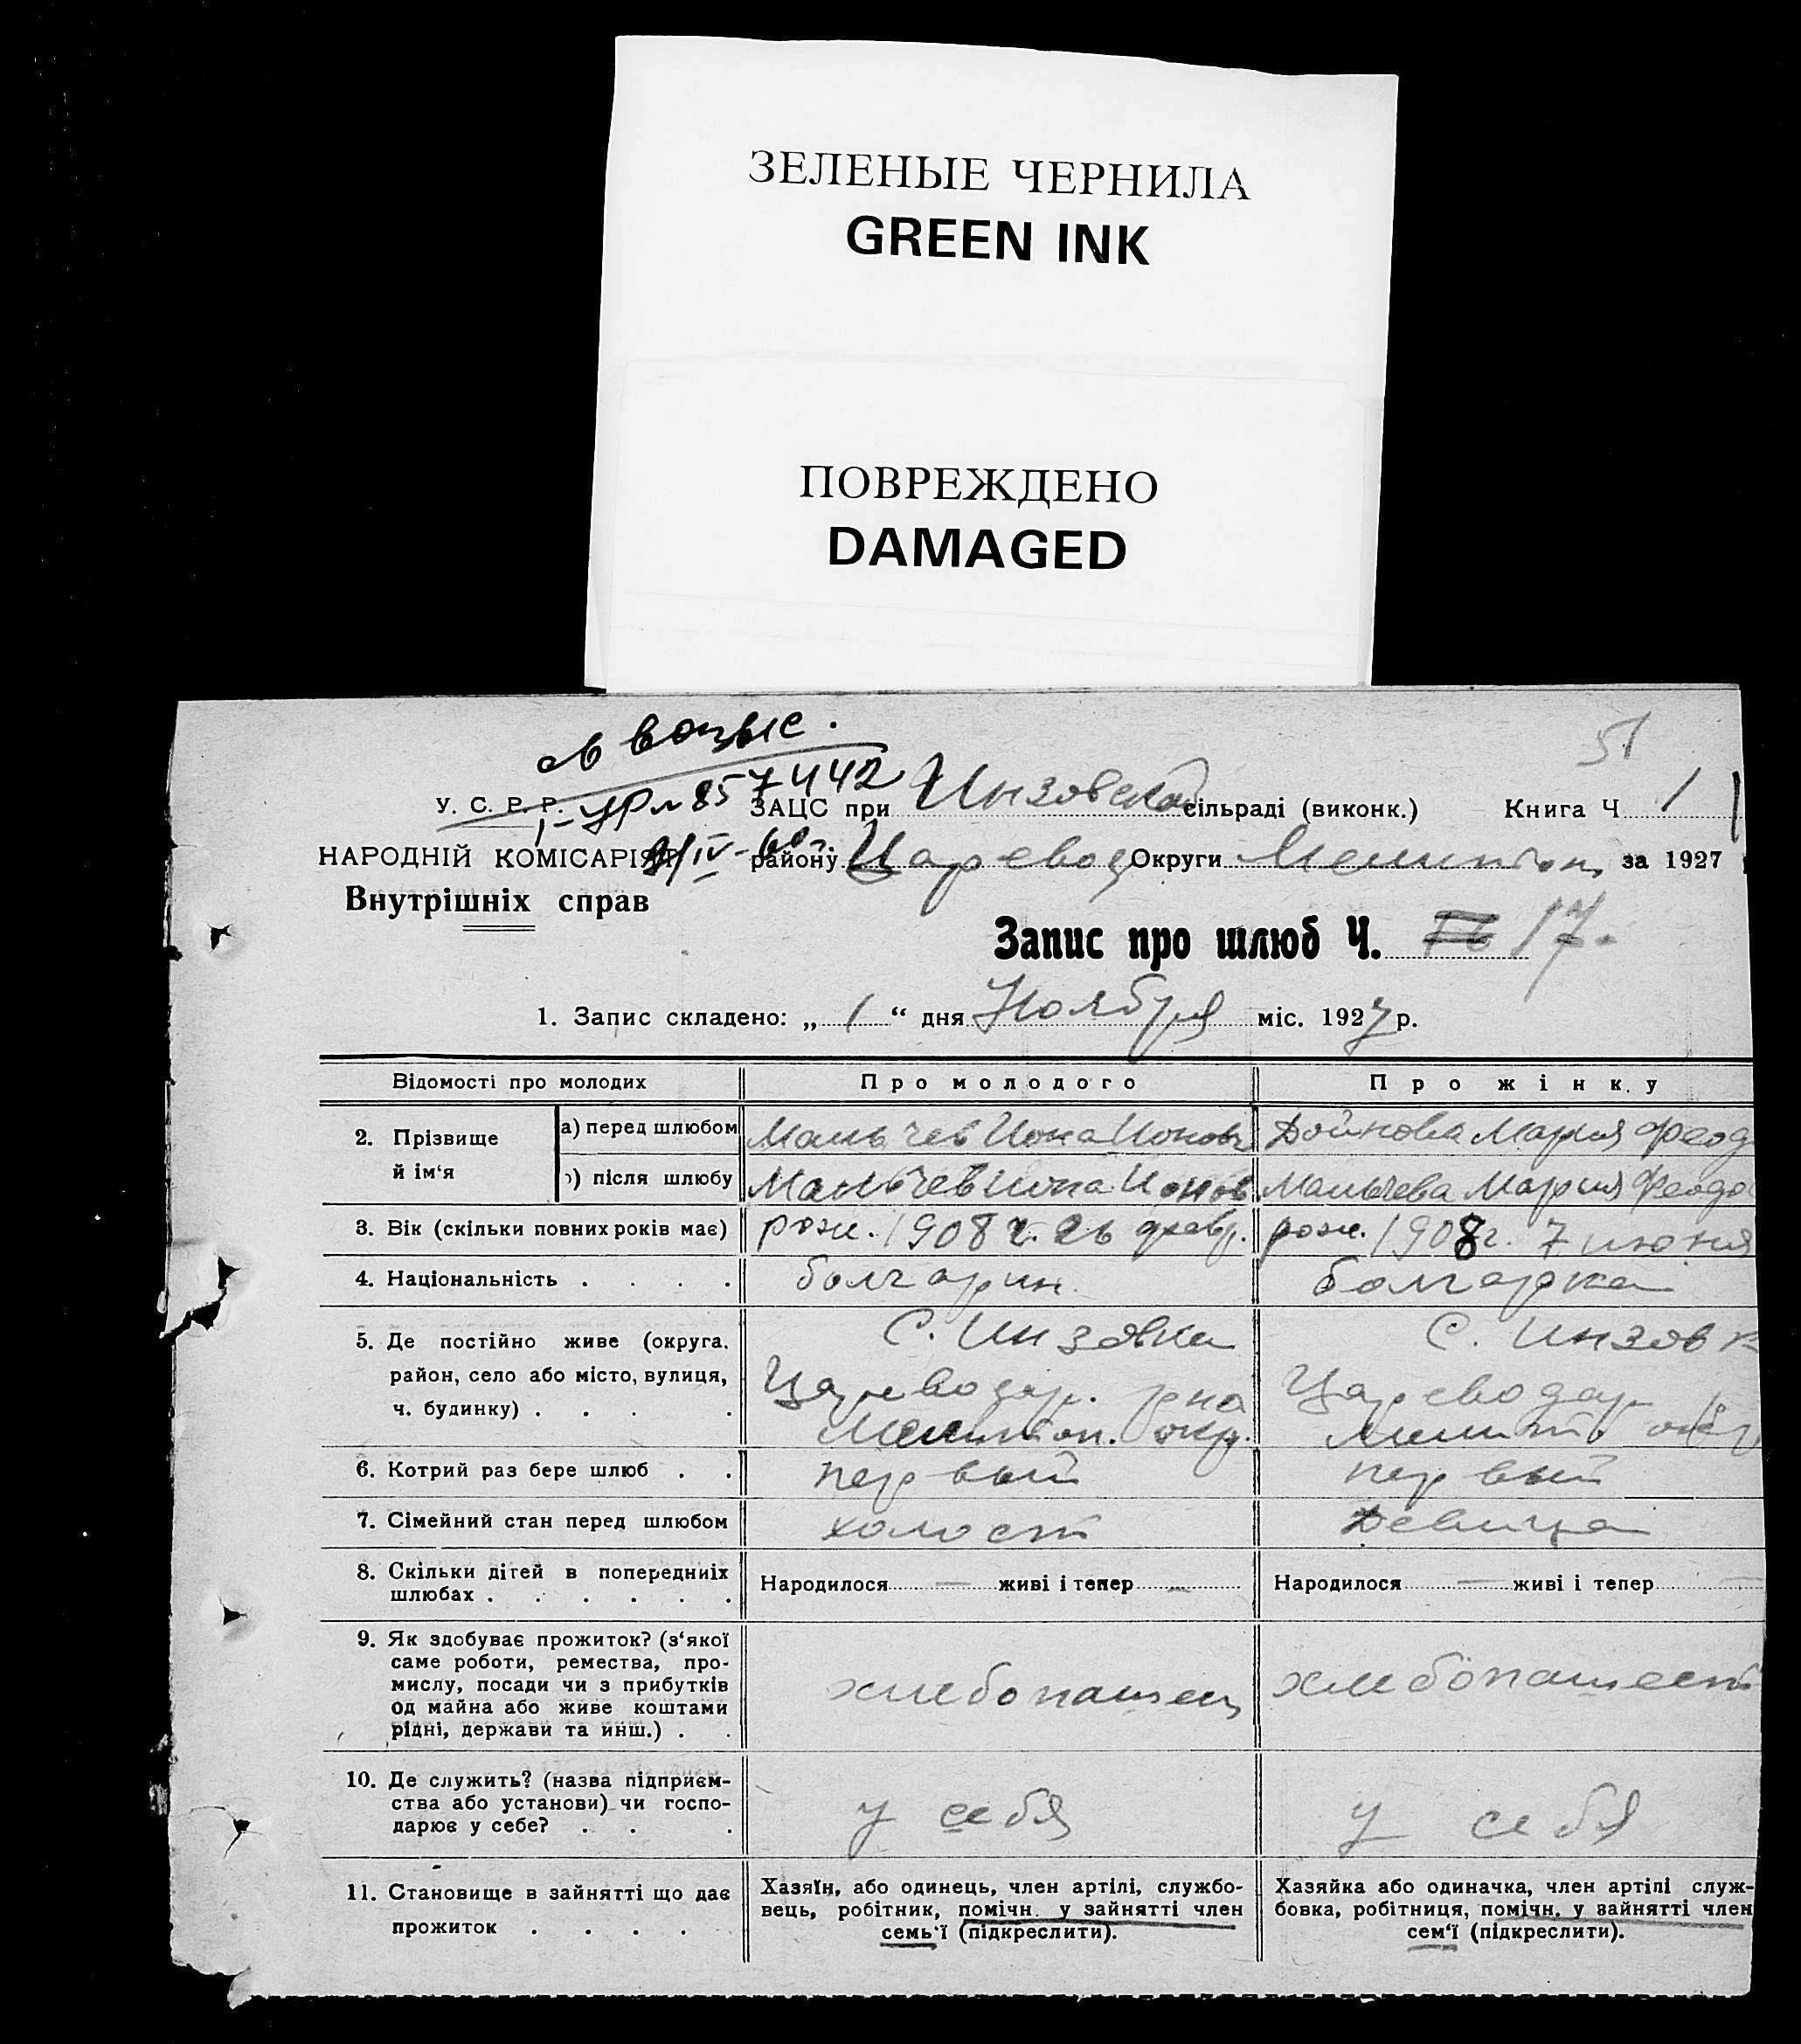 ЗЕЛЕНЫЕ ЧЕРНИЛА
GREEN INK
ПОВРЕЖДЕНО
DAMAGED
51
857442
У. С. Р. Р. ЗАЦС при Инзовской сільраді (виконк.) Книга Ч 1
НАРОДНІЙ КОМІСАРІЯТ району Царевод Округи Мелитоп за 1927
Внутрішніх справ
Запис про шлюб Ч. 17.
1. Запис складено: „ 1 “ дня Ноября міс. 1927 р.
Відомості про молодих Про молодого Про жінку
2. Прізвище й ім‘я
а) перед шлюбом Мальчев Иона Ионов Дойнова Мария Феод
) після шлюбу Мальчев Иона Ионов. Мальчева Мария Феодо
3. Вік (скільки повних років має) рож. 1908 г. 26 февр. рож. 1908 г. 7 июня
4. Національність . . . . болгарин. болгарка
5. Де постійно живе (округа, район, село або місто, вулиця, ч. будинку) . . . .
С. Инзовка С. Инзовк
Цареводар. рна Цареводар р
Мелитоп. окр. Мелит окр
6. Котрий раз бере шлюб . . первый первый
7. Сімейний стан перед шлюбом холост Девица
8. Скільки дітей в попередниіх
шлюбах . . . . . .
Народилося — живі і тепер — Народилося — живі і тепер —
9. Як здобуває прожиток? (з‘якої
саме роботи, ремества, про-
мислу, посади чи з прибутків
од майна або живе коштами
рідні, держави та инш.) . .
хлебопашец хлебопашест
10. Де служить? (назва підприєм-
ства або установи) чи госпо-
дарює у себе? . . .
у себя у себя
11. Становище в зайнятті що дає
прожиток . . . .
Хазяїн, або одинець, член артілі, службо-
вець, робітник, помічн. у зайнятті член
семь‘ї (підкреслити).
Хазяйка або одиначка, член артілі служ-
бовка, робітниця, помічн. у зайнятті член
сем‘ї (підкреслити).